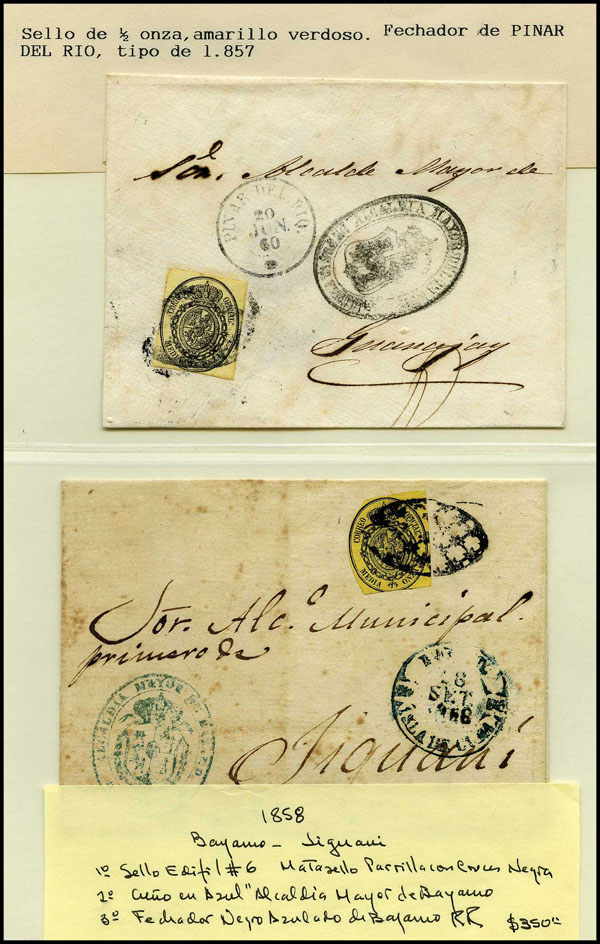 Sello de ½ onza,amarillo verdoso. Fechador de PINAR
DEL RIO, tipo de 1.857
Sor. Alcalde Mayor de
PINAR DEL RIO.
20
JUN.
60
ALCALDIA MAYOR
CORREO OFICIAL
MEDIA ONZA
Guanajay
CORREO OFICIAL
MEDIA ONZA
Sor. Alce. Municipal.
primero de
SET
ISLA DE
ALCALDIA MAYOR DE BAYAMO
Jiguaní
1858
Bayamo - Jiguani
1º Sello Edifil #6 Matasello Parrilla con Cruces Negra
2º Cuño en Azul "Alcaldia Mayor de Bayamo
3º Fechador Negro Azulado de Bayamo RR $350